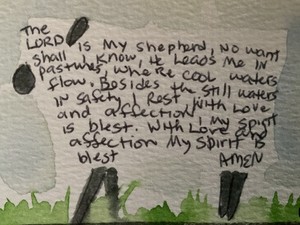 The
LORD is My shepherd, NO want
shall I know, He Leads Me IN
pastures, where cool waters
flow. Besides the still waters
IN Safety I Rest, With Love
and affection My spirit
is blest. With Love and
affection My Spirit is
blest AMEN